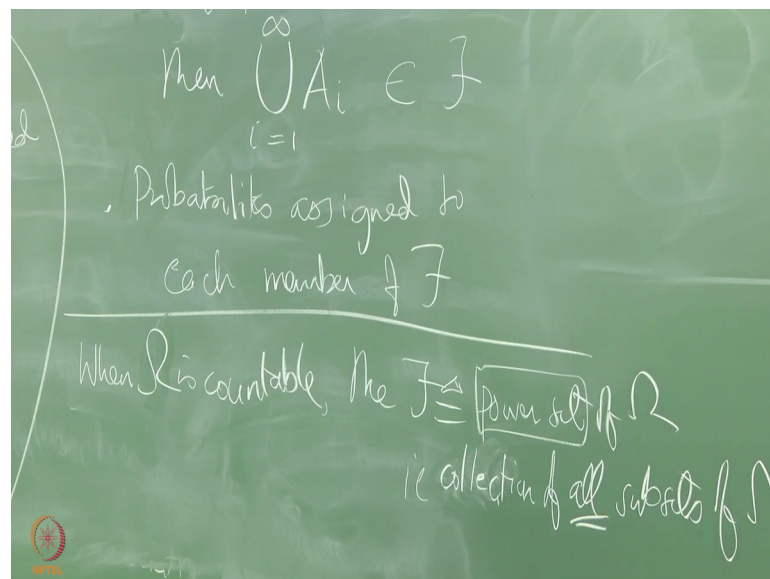 ∞
then ⋃ Aᵢ ∈ F
i = 1
ed
. Probabilities assigned to
each member of F
When Ω is countable, the F ≜ power set of Ω
ie collection of all subsets of Ω
NPTEL